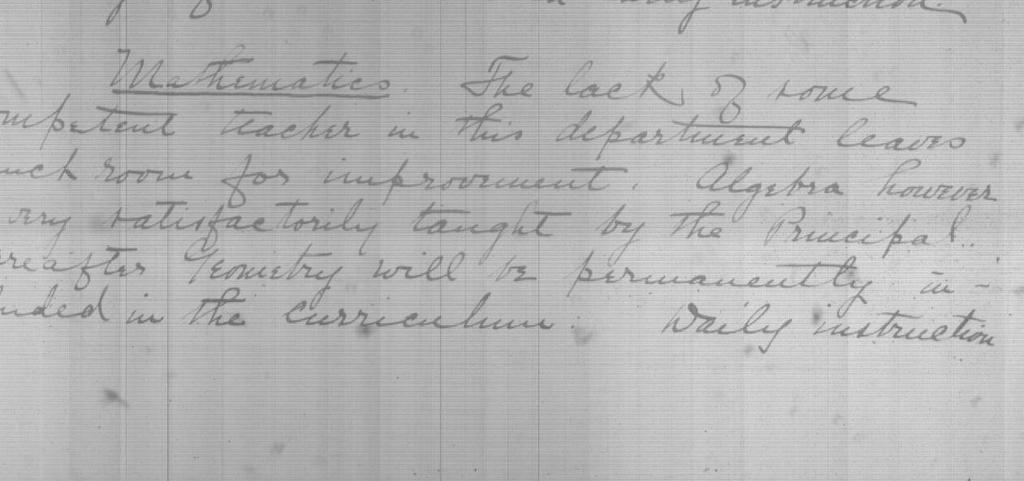 instruction.
Mathematics. The lack of some
mpetent teacher in this department leaves
uch room for improvement. Algebra however
ery satisfactorily taught by the Principal.
ereafter Geometry will be permanently in-
uded in the curriculum. Daily instruction